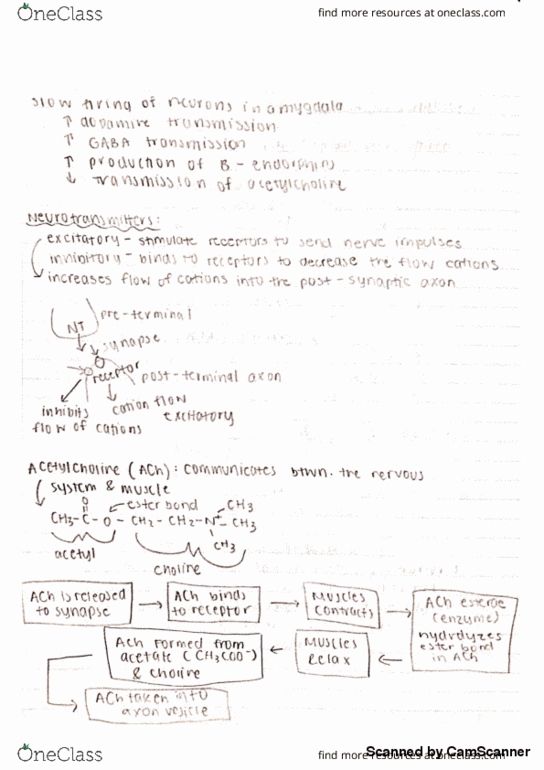 OneClass
find more resources at oneclass.com
slow firing of neurons in amygdala
↑ dopamine transmission
↑ GABA transmission
↑ production of B - endorphins
↓ transmission of acetylcholine
Neurotransmitters:
excitatory - stimulate receptors to send nerve impulses
inhibitory - binds to receptors to decrease the flow cations
increases flow of cations into the post - synaptic axon
pre-terminal
NT
synapse
receptor
post-terminal axon
inhibits
flow of cations
cation flow
excitatory
Acetylcholine (ACh): communicates btwn. the nervous
system & muscle
O
ester bond
CH3
CH3-C-O-CH2-CH2-N+-CH3
CH3
acetyl
choline
ACh is released
to synapse
ACh binds
to receptor
Muscles
contracts
ACh
(enzyme)
hydrolyzes
ester bond
in ACh
Muscles
relax
ACh formed from
acetate (CH3COO-)
& choline
ACh taken into
axon vesicle
OneClass
find more resources at oneclass.com
Scanned by CamScanner